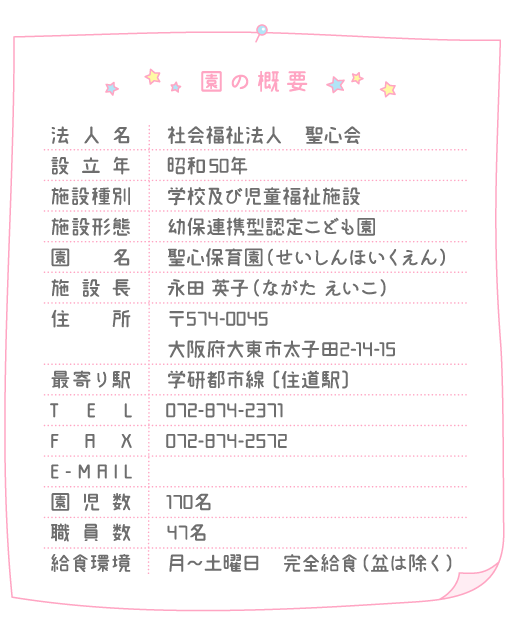 園の概要
法人名 社会福祉法人 聖心会
設立年 昭和50年
施設種別 学校及び児童福祉施設
施設形態 幼保連携型認定こども園
園名 聖心保育園(せいしんほいくえん)
施設長 永田 英子(ながた えいこ)
住所 〒574-0045
大阪府大東市太子田2-14-15
最寄り駅 学研都市線〔住道駅〕
TEL 072-874-2371
FAX 072-874-2572
E-MAIL
園児数 170名
職員数 47名
給食環境 月〜土曜日 完全給食(盆は除く)